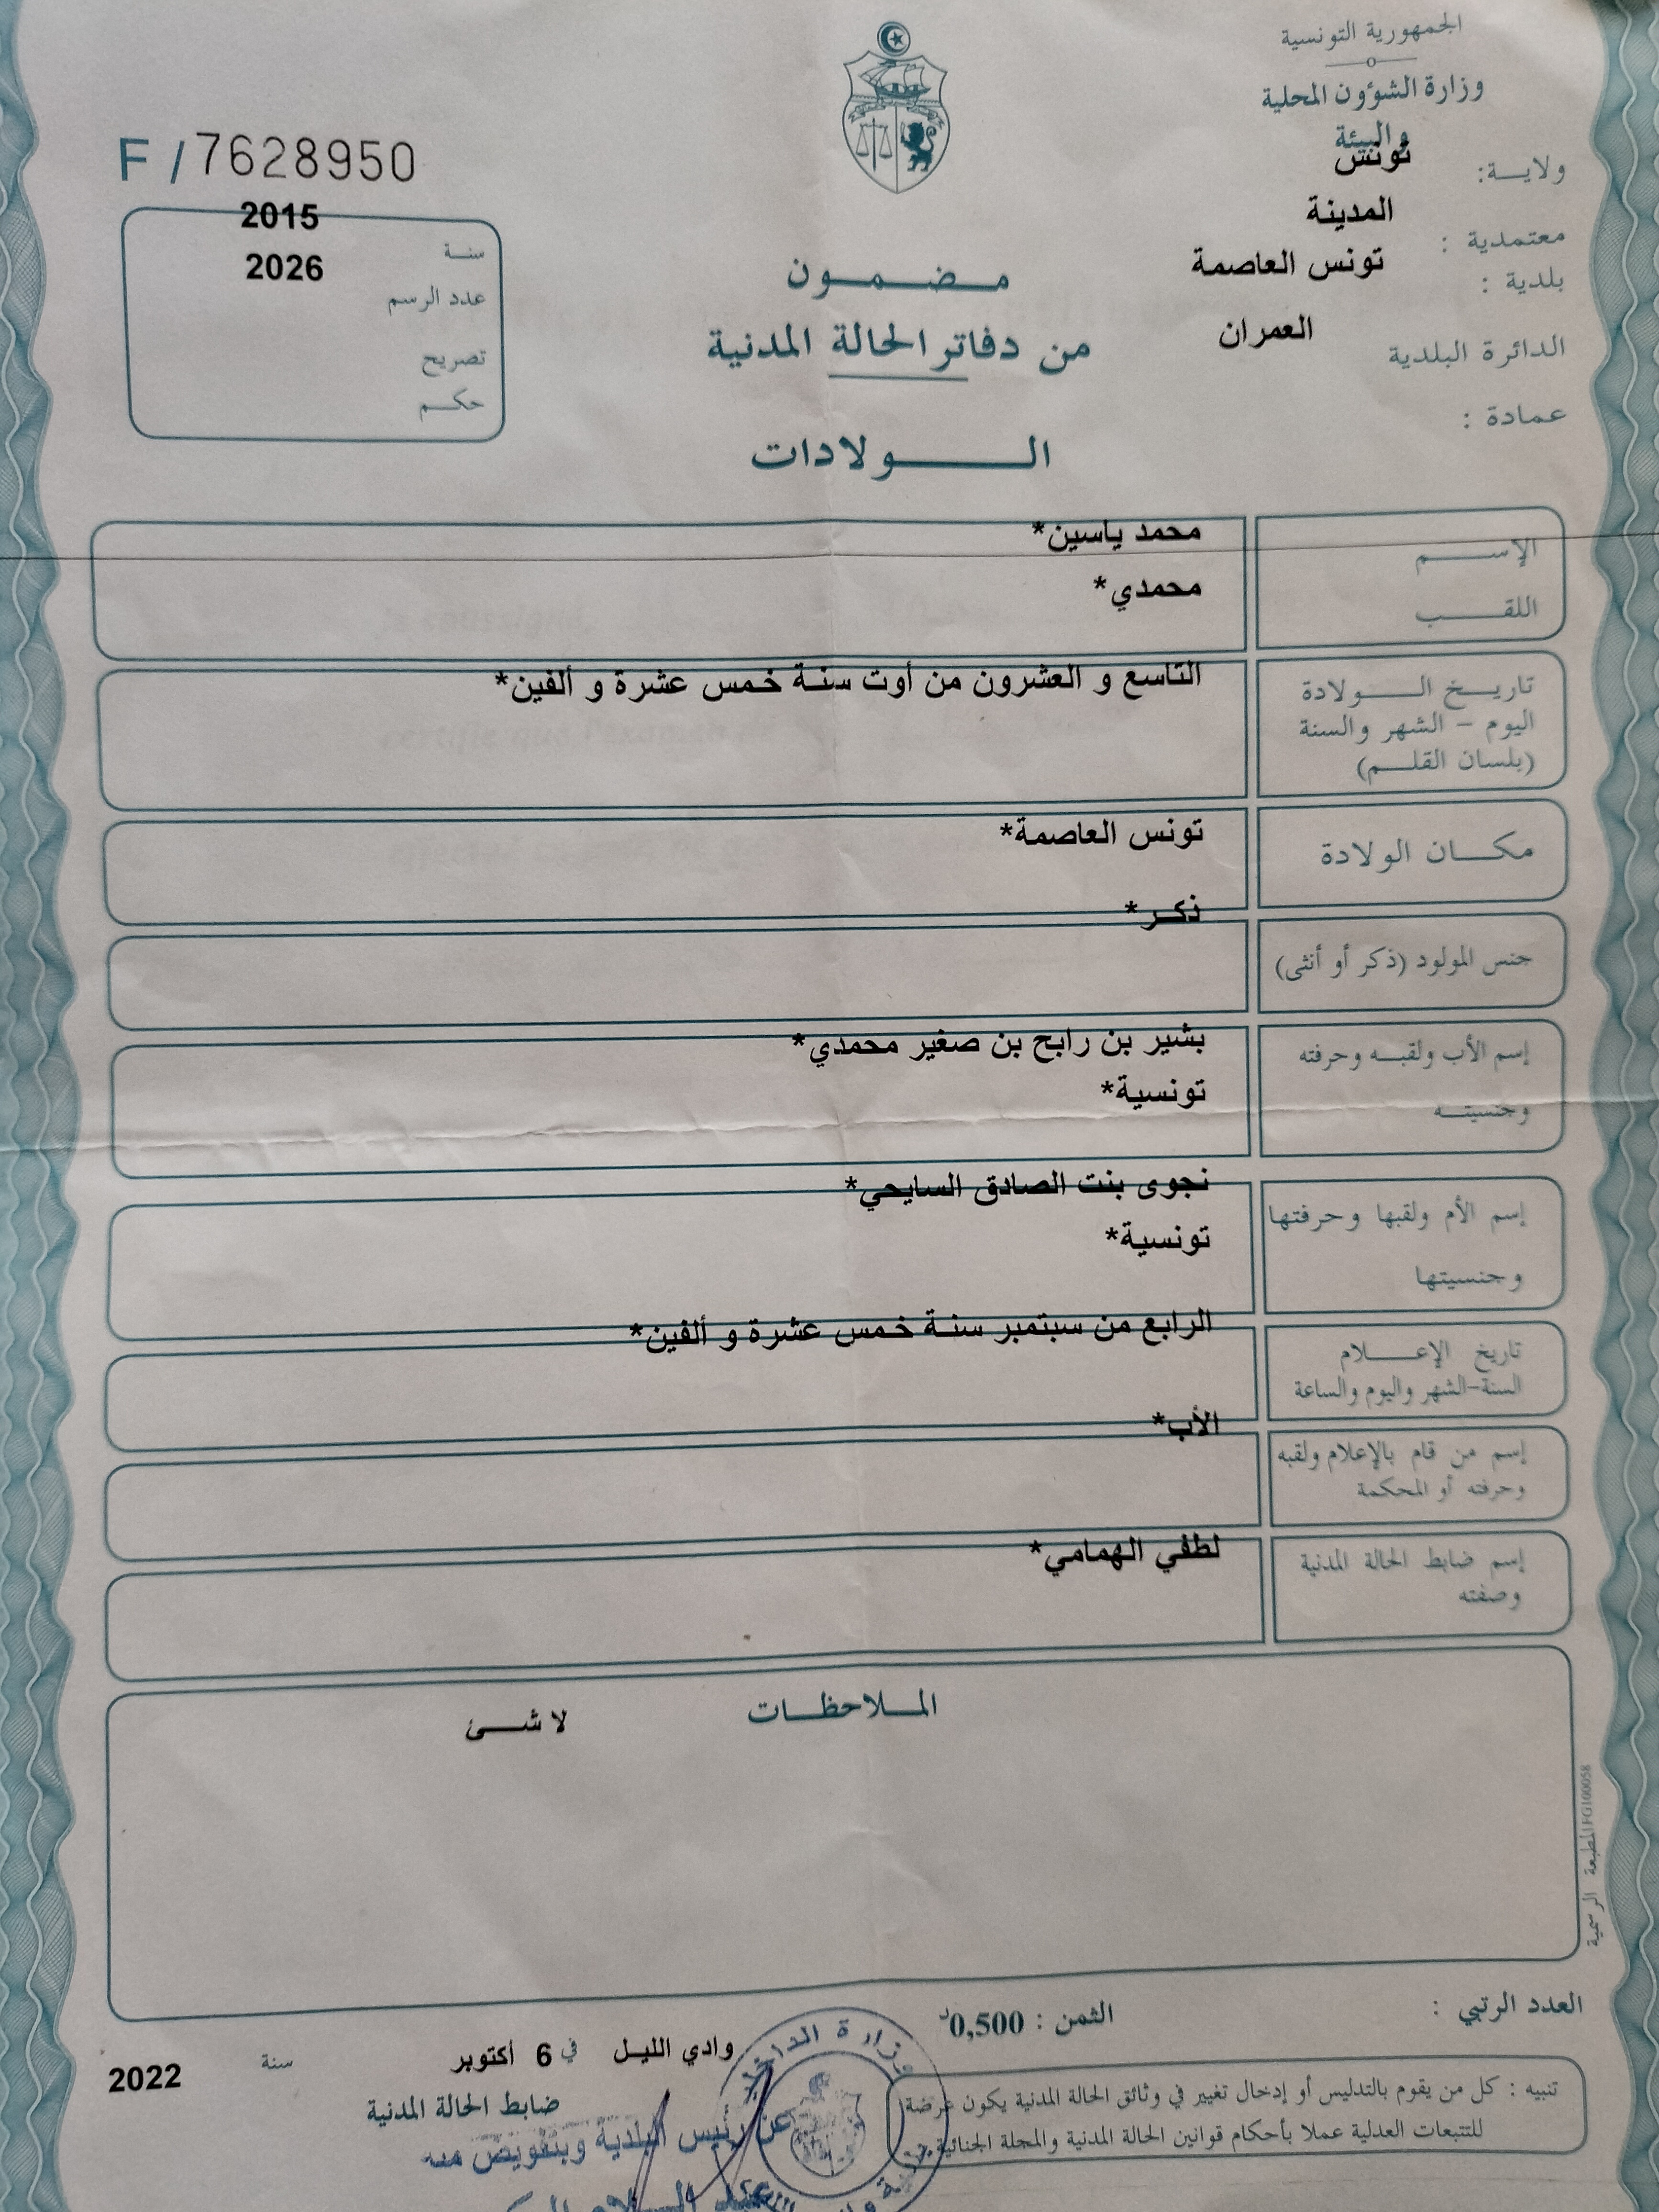 الجمهورية التونسية
وزارة الشؤون المحلية
والبيئة
ولاية: تونس
معتمدية : المدينة
بلدية : تونس العاصمة
الدائرة البلدية العمران
عمادة :
F / 7628950
سنة 2015
عدد الرسم 2026
تصريح
حكم
مضمون
من دفاتر الحالة المدنية
الولادات
الإسم محمد ياسين*
اللقب محمدي*
تاريخ الولادة التاسع و العشرون من أوت سنة خمس عشرة و ألفين*
اليوم - الشهر والسنة
(بلسان القلم)
مكان الولادة تونس العاصمة*
ذكر*
جنس المولود (ذكر أو أنثى)
إسم الأب ولقبه وحرفته بشير بن رابح بن صغير محمدي*
وجنسيته تونسية*
نجوى بنت الصادق السايحي*
إسم الأم ولقبها وحرفتها
تونسية*
وجنسيتها
الرابع من سبتمبر سنة خمس عشرة و ألفين*
تاريخ الإعلام
السنة-الشهر واليوم والساعة
الأب*
إسم من قام بالإعلام ولقبه
وحرفته أو المحكمة
لطفي الهمامي*
إسم ضابط الحالة المدنية
وصفته
الملاحظات
لا شئ
المطبعة الرسمية FG100058
العدد الرتبي :
الثمن : 0,500د
وادي الليل في 6 أكتوبر سنة 2022
ضابط الحالة المدنية
تنبيه : كل من يقوم بالتدليس أو إدخال تغيير في وثائق الحالة المدنية يكون عرضة
للتتبعات العدلية عملا بأحكام قوانين الحالة المدنية والمجلة الجنائية
وزارة الداخلية
عن رئيس البلدية وبتفويض منه